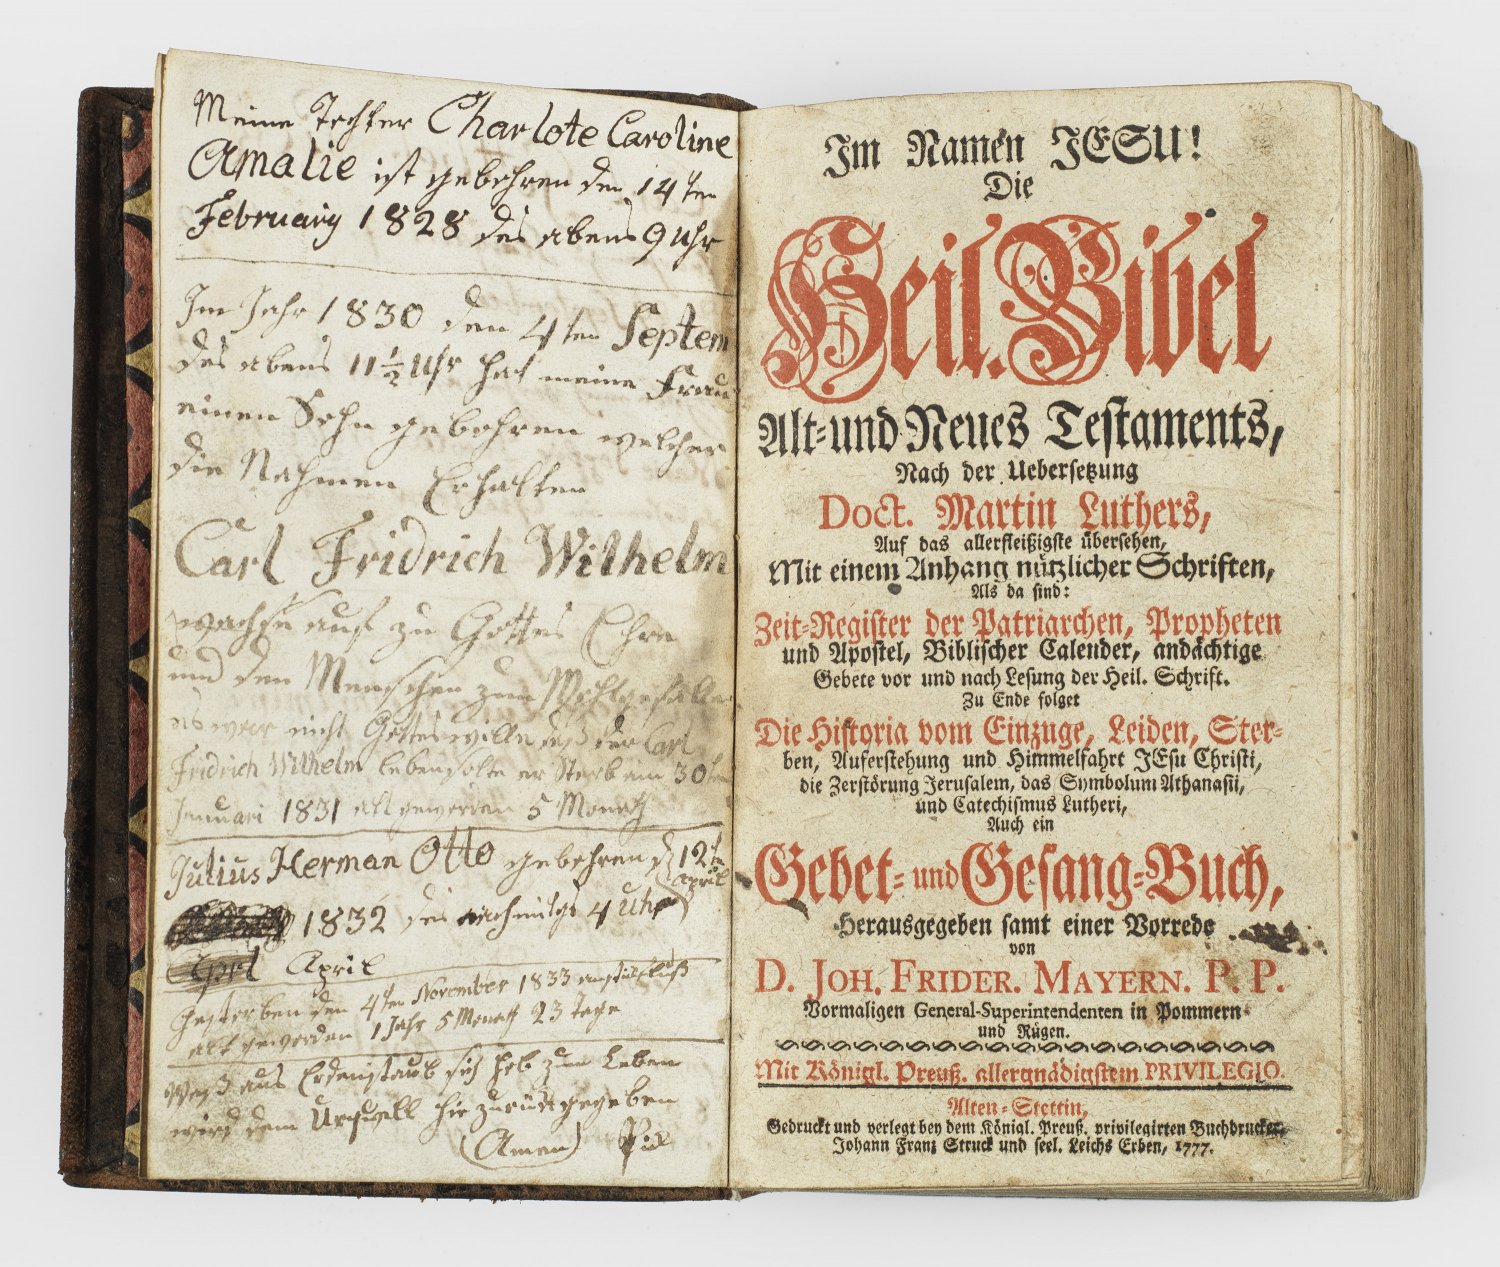 Meine Tochter Charlote Caroline
Amalie ist gebohren den 14ten
February 1828 des abens 9 Uhr
Im Jahr 1830 den 4ten Septem
des abens 11½ Uhr hat meine Frau
einen Sohn gebohren welcher
die Nahmen Erhalten
Carl Fridrich Wilhelm
wachse auf zu Gottes Ehre
und den Menschen zum Wohlgefallen
es war nicht Gottes wille daß der Carl
Fridrich Wilhelm leben solte er Starb am 30ten
Januari 1831 alt geworden 5 Monath
Julius Herman Otto gebohren d 12ten
April
1832 des nachmitgs 4 Uhr
April
gestorben den 4ten November 1833
alt geworden 1 Jahr 5 Monath 23 Tage
Was aus Erdenstaub sich hob zum Leben
wird dem Urquell hie zurück gegeben
(Amen)
Im Namen JESU!
Die
Heil. Bibel
Alt- und Neues Testaments,
Nach der Uebersetzung
Doct. Martin Luthers,
Auf das allerfleißigste übersehen,
Mit einem Anhang nützlicher Schriften,
Als da sind:
Zeit-Register der Patriarchen, Propheten
und Apostel, Biblischer Calender, andächtige
Gebete vor und nach Lesung der Heil. Schrift.
Zu Ende folget
Die Historia vom Einzuge, Leiden, Ster-
ben, Auferstehung und Himmelfahrt JEsu Christi,
die Zerstörung Jerusalem, das Symbolum Athanasii,
und Catechismus Lutheri,
Auch ein
Gebet- und Gesang-Buch,
Herausgegeben samt einer Vorrede
von
D. JOH. FRIDER. MAYERN. P. P.
Vormaligen General-Superintendenten in Pommern
und Rügen.
Mit Königl. Preuß. allergnädigstem PRIVILEGIO.
Alten-Stettin,
Gedruckt und verlegt bey dem Königl. Preuß. privilegirten Buchdrucker,
Johann Franz Struck und seel. Leichs Erben, 1777.